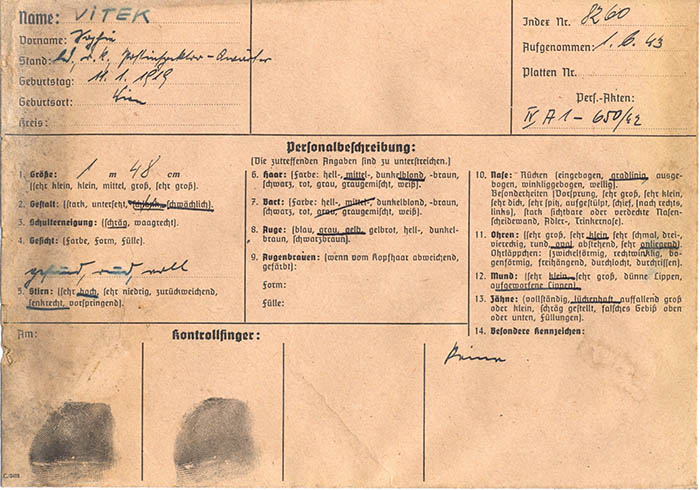 Name: VITEK
Vorname: Sophie
Stand: led., r.k., Postinspektor-Anwärter
Geburtstag: 11.1.1919
Geburtsort: Wien
Kreis:
Index Nr. 8260
Aufgenommen: 1.6.43
Platten Nr.
Pers.-Akten:
IV A 1 - 650/42
Personalbeschreibung:
(Die zutreffenden Angaben sind zu unterstreichen.)
1. Größe: 1 m 48 cm
(sehr klein, klein, mittel, groß, sehr groß).
2. Gestalt: (stark, untersetzt, schlank, schwächlich).
3. Schulterneigung: (schräg, waagrecht).
4. Gesicht: (Farbe, Form, Fülle).
gesund, rund, voll
5. Stirn: (sehr hoch, sehr niedrig, zurückweichend,
senkrecht, vorspringend).
6. Haar: (Farbe: hell-, mittel-, dunkelblond, -braun,
schwarz, rot, grau, graugemischt, weiß).
7. Bart: (Farbe: hell-, mittel-, dunkelblond, -braun,
schwarz, rot, grau, graugemischt, weiß).
8. Auge: (blau, grau, gelb, gelbrot, hell-, dunkel-
braun, schwarzbraun).
9. Augenbrauen: (wenn vom Kopfhaar abweichend,
gefärbt):
Form:
Fülle:
10. Nase: Rücken (eingebogen, gradlinig, ausge-
bogen, winkliggebogen, wellig).
Besonderheiten (Vorsprung, sehr groß, sehr klein,
sehr dick, sehr spitz, aufgestülpt, schief, [nach rechts,
links], stark sichtbare oder verdeckte Nasen-
scheidewand, Adler-, Trinkernase).
11. Ohren: (sehr groß, sehr klein, sehr schmal, drei-,
viereckig, rund, oval, abstehend, sehr anliegend).
Ohrläppchen: (zwickelförmig, rechtwinklig, bo-
genförmig, freihängend, durchlocht, durchrissen).
12. Mund: (sehr klein, sehr groß, dünne Lippen,
aufgeworfene Lippen).
13. Zähne: (vollständig, lückenhaft, auffallend groß
oder klein, schräg gestellt, falsches Gebiß oben
oder unten, Füllungen).
14. Besondere Kennzeichen:
Keine
Am:
Kontrollfinger: